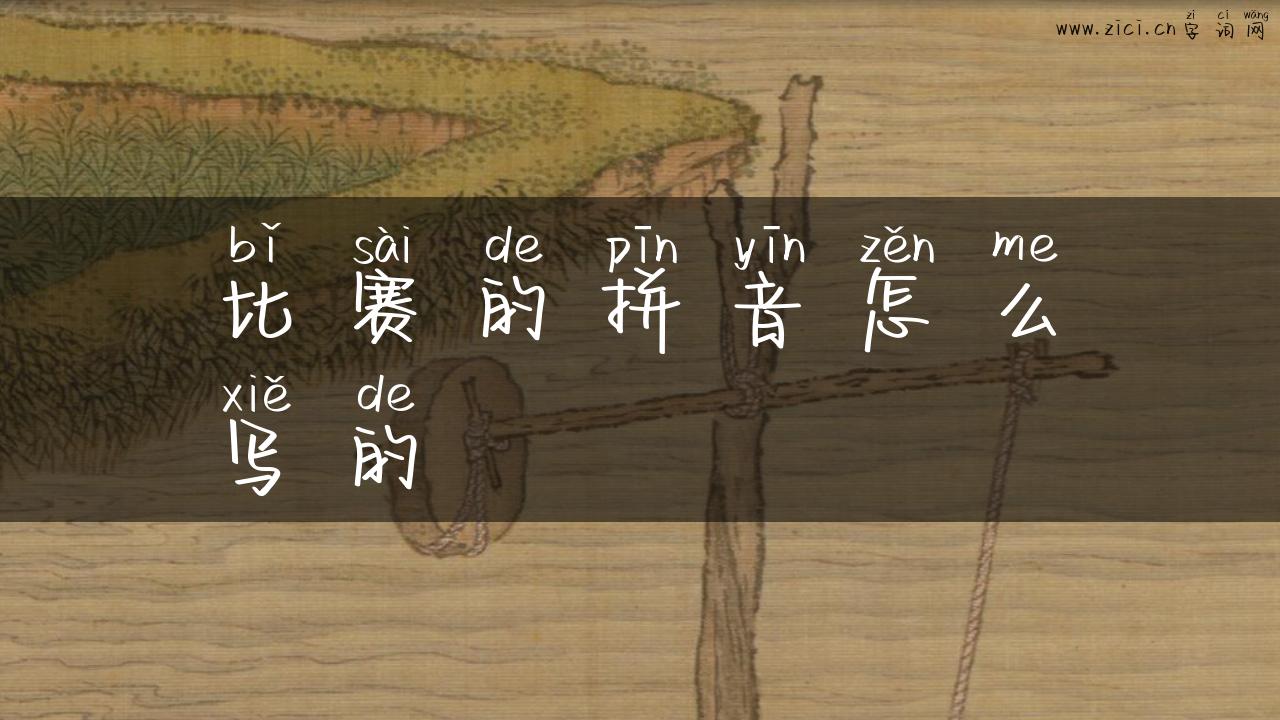 zì cí wǎng
www.zici.cn 字词网
bǐ sài de pīn yīn zěn me
比赛的拼音怎么
xiě de
写的